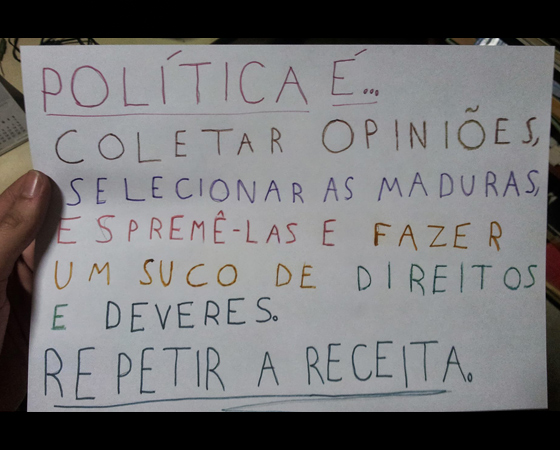 POLÍTICA É...
COLETAR OPINIÕES,
SELECIONAR AS MADURAS,
ESPREMÊ-LAS E FAZER
UM SUCO DE DIREITOS
E DEVERES.
REPETIR A RECEITA.